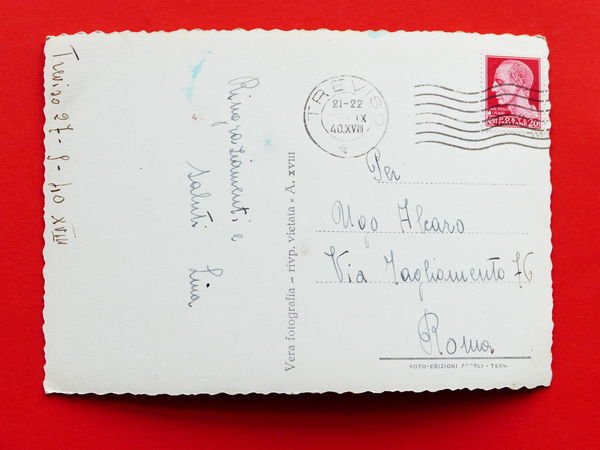 Treviso 27-8-40 XVIII
Ringraziamenti e
saluti Lina
Vera fotografia - rivp. vietata - A. XVIII
TREVISO
21-22
IX
40.XVIII
20
Per
Ugo Alcaro
Via Tagliamento 76
Roma
FOTO-EDIZIONI - TERNI